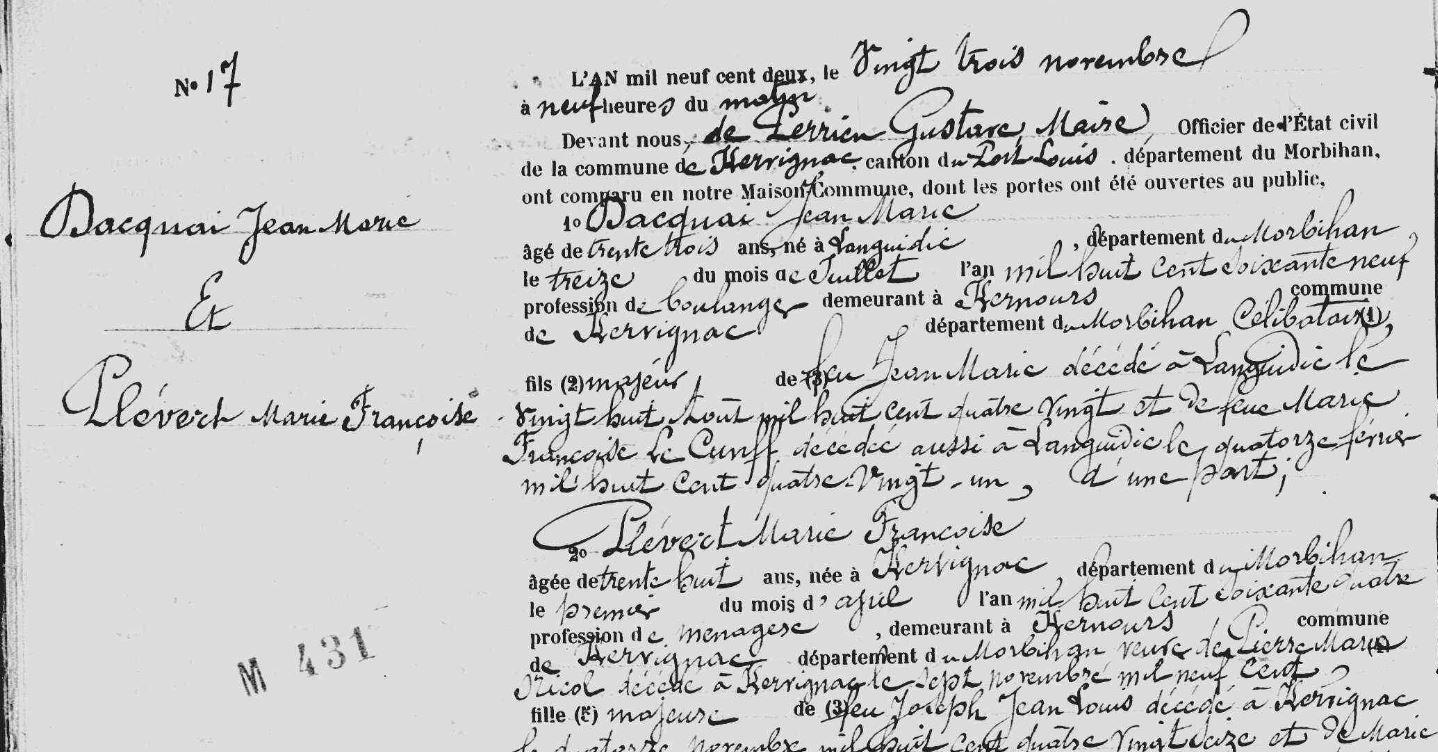 No 17
L'AN mil neuf cent deux, le Vingt trois novembre
à neuf heures du matin
Devant nous, de Perrien Gustave, Maire, Officier de l'État civil
de la commune de Kervignac, canton du Port Louis. département du Morbihan,
ont comparu en notre Maison Commune, dont les portes ont été ouvertes au public,
Dacquai Jean Marie
Et
Plévert Marie Françoise
M 431
1o Dacquai Jean Marie
âgé de trente trois ans, né à Languidic, département du Morbihan,
le treize du mois de Juillet l'an mil huit cent soixante neuf
profession de boulanger demeurant à Kernours commune
de Kervignac département du Morbihan Célibataire (1),
fils (2) majeur de (3) feu Jean Marie décédé à Languidic le
vingt huit Août mil huit cent quatre vingt et de feue Marie
Françoise Le Cunff décédée aussi à Languidic le quatorze février
mil huit cent quatre-vingt-un, d'une part;
2o Plévert Marie Françoise
âgée de trente huit ans, née à Kervignac département du Morbihan
le premier du mois d'avril l'an mil huit cent soixante quatre
profession de ménagère, demeurant à Kernours commune
de Kervignac département du Morbihan veuve de Pierre Marie
décédé à Kervignac le sept novembre mil neuf cent
fille (5) majeure de (3) feu Joseph Jean Louis décédé à Kervignac
le quatorze novembre mil huit cent quatre vingt seize et de Marie